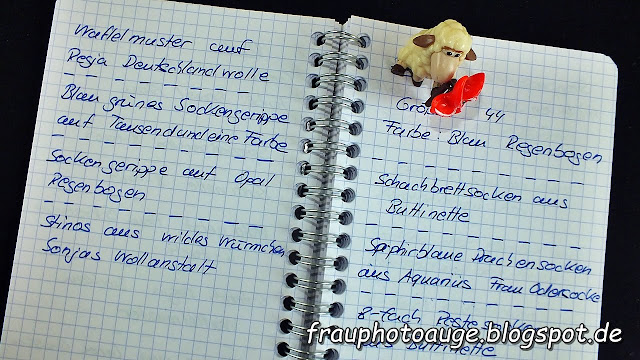 Waffelmuster auf
Regia Deutschlandwolle
Blau grünes Sockengerippe
auf Tausendundeine Farbe
Sockengerippe auf Opal
Regenbogen
Stinos aus wildes Würmchen
Sonjas Wollanstalt
44
Farbe: Blau Regenbogen
Schachbrettsocken aus
Buttinette
Saphirblaue Drachensocken
aus Aquarius Frau Odersocke
8-fach
aus Buttinette
frauphotoauge.blogspot.de